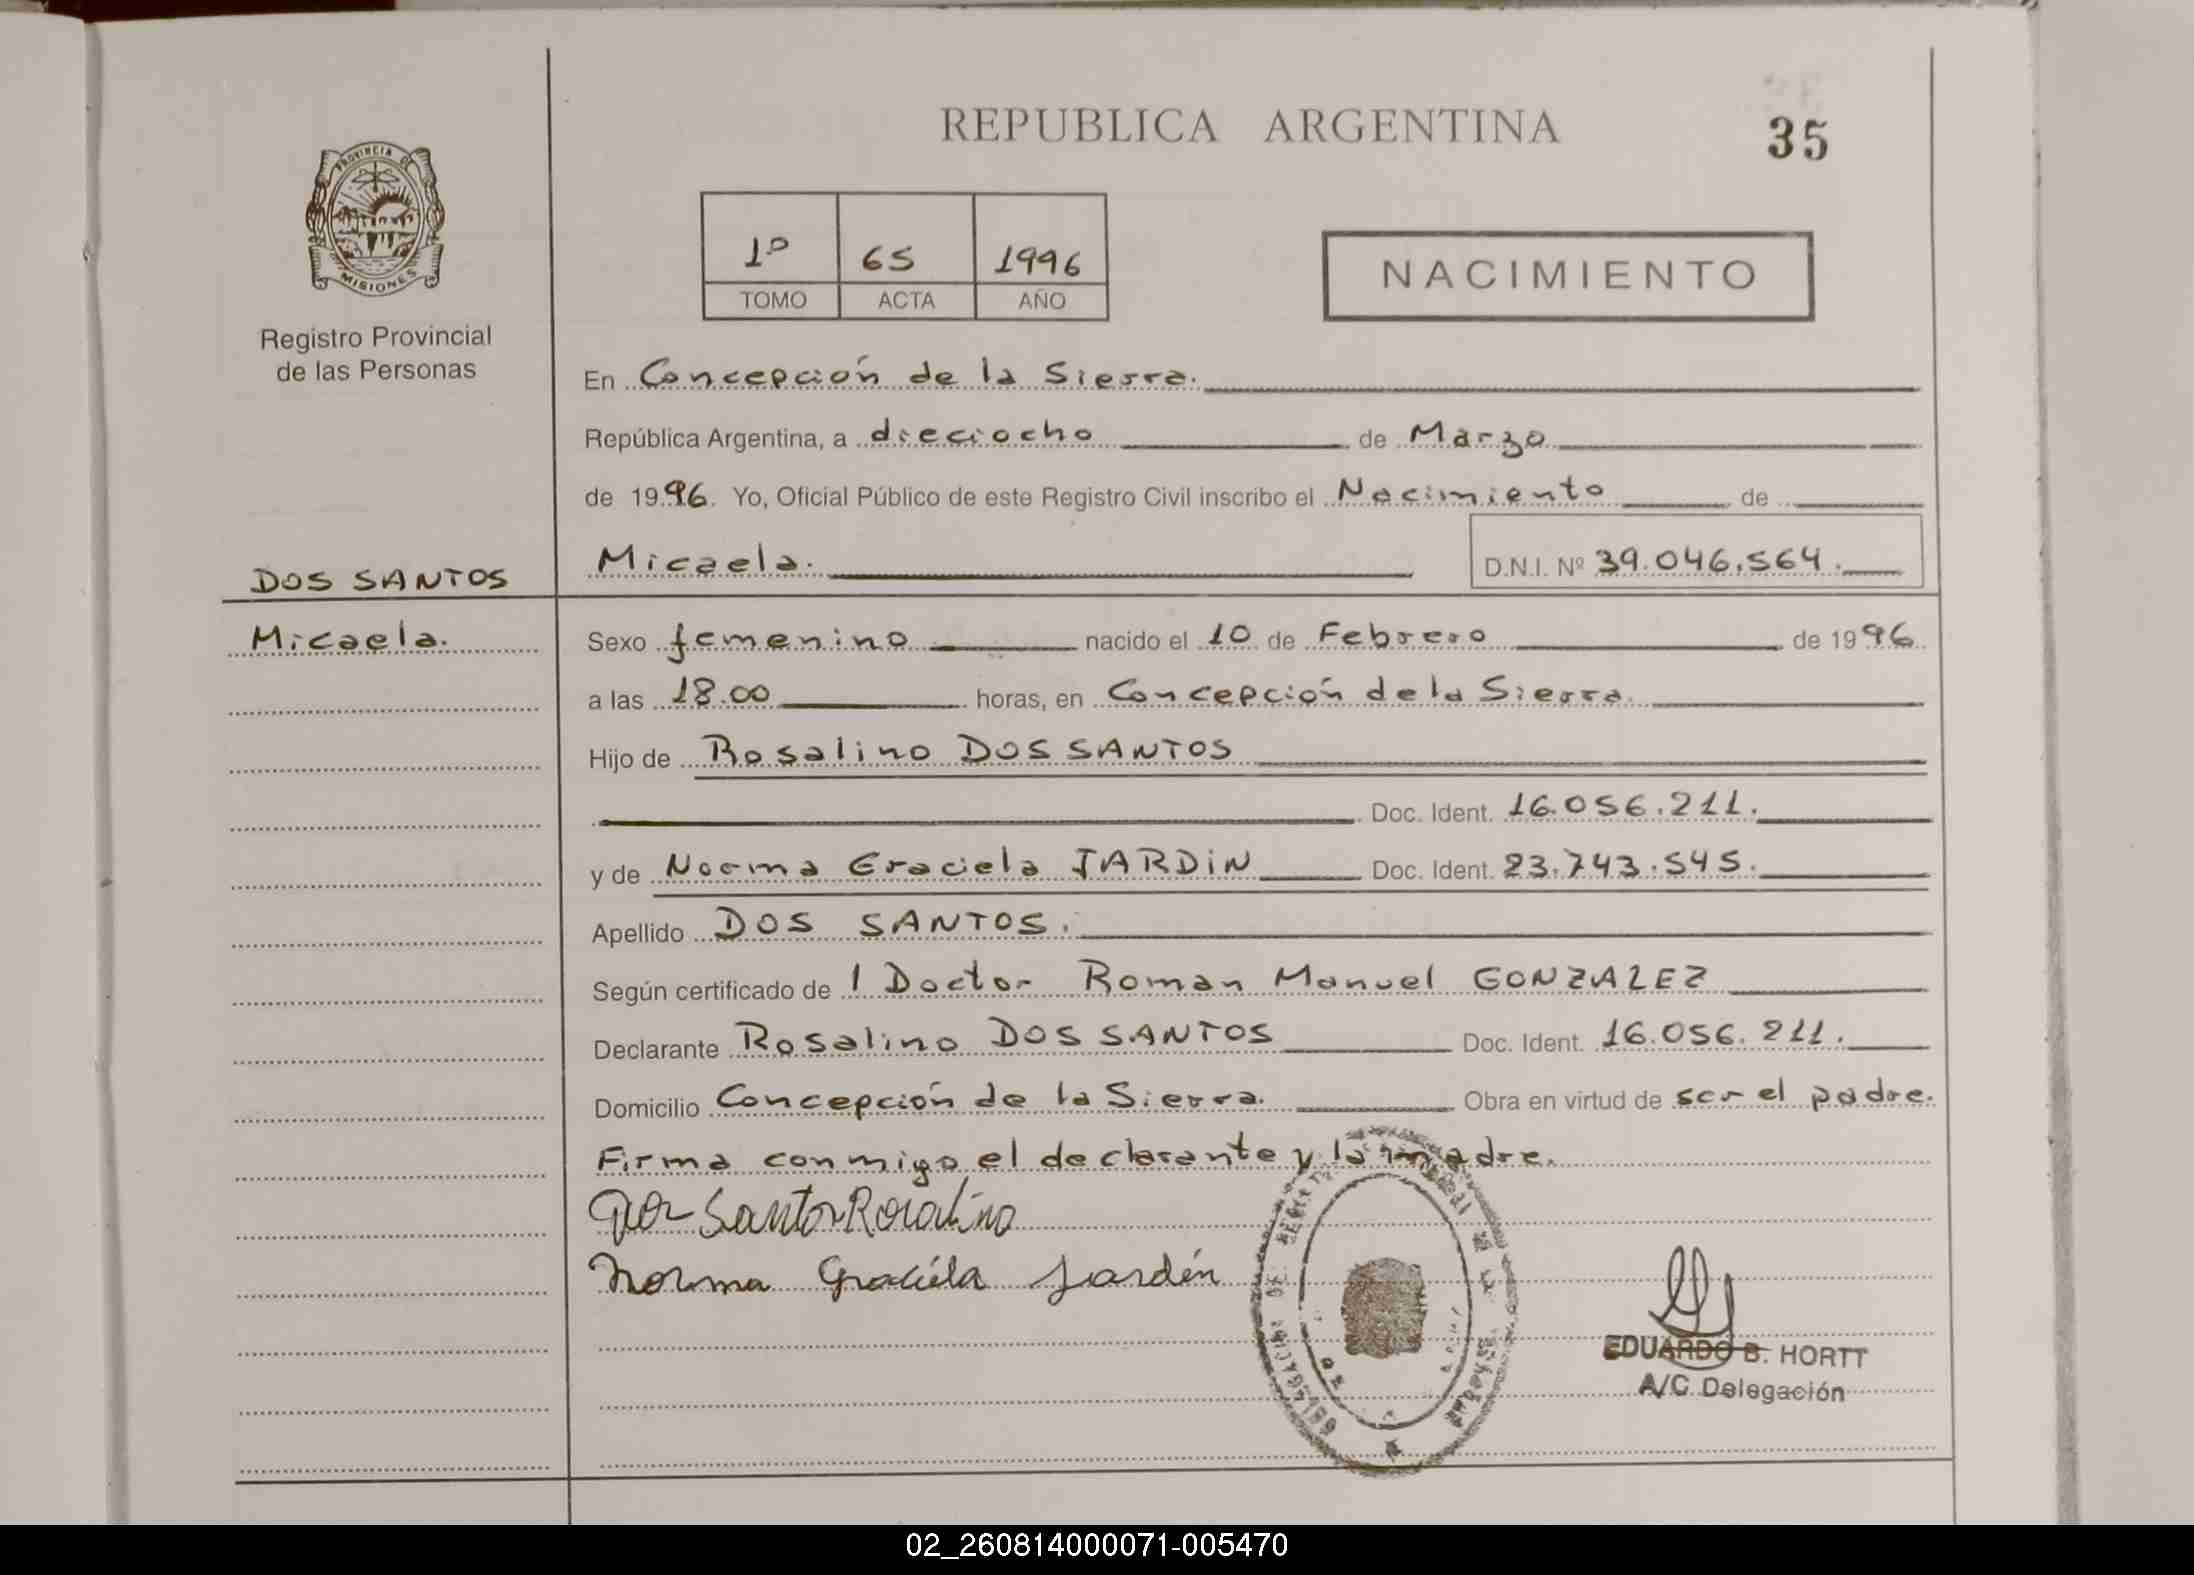 REPUBLICA ARGENTINA
35
PROVINCIA DE
MISIONES
Registro Provincial
de las Personas
1º 65 1996
TOMO ACTA AÑO
NACIMIENTO
En Concepción de la Sierra.
República Argentina, a dieciocho de Marzo
de 1996. Yo, Oficial Público de este Registro Civil inscribo el Nacimiento de
Micaela. D.N.I. Nº 39.046.564.
DOS SANTOS
Micaela.
Sexo femenino nacido el 10 de Febrero de 1996
a las 18.00 horas, en Concepción de la Sierra.
Hijo de Rosalino DOS SANTOS
Doc. Ident. 16.056.211.
y de Norma Graciela JARDIN Doc. Ident. 23.743.545.
Apellido DOS SANTOS.
Según certificado de l Doctor Roman Manuel GONZALEZ
Declarante Rosalino DOS SANTOS Doc. Ident. 16.056.211.
Domicilio Concepción de la Sierra. Obra en virtud de ser el padre.
Firma conmigo el declarante y la madre.
Dos Santos Rosalino
Norma Graciela Jardín
EDUARDO B. HORTT
A/C Delegación
02_260814000071-005470